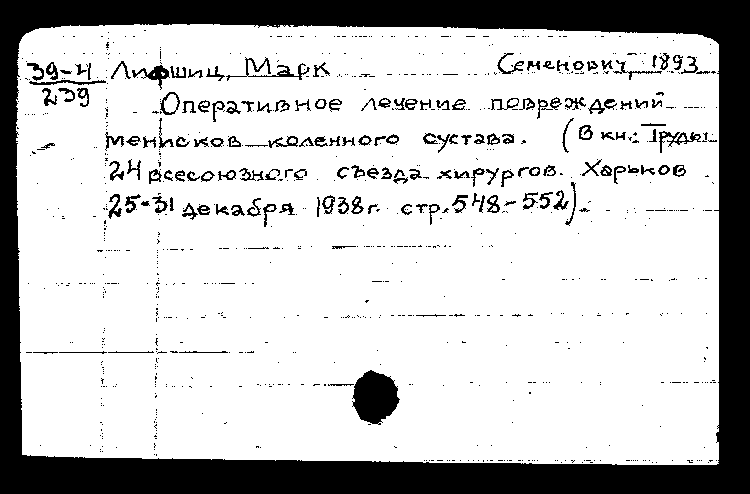 39-4 Лифшиц, Марк Семенович, 1893
239
Оперативное лечение повреждений
менисков коленного сустава. (В кн.: Труды
24 всесоюзного съезда хирургов. Харьков
25-31 декабря 1938г. стр. 548-552).